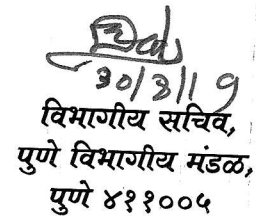 30/3/19
विभागीय सचिव,
पुणे विभागीय मंडळ,
पुणे ४११००५